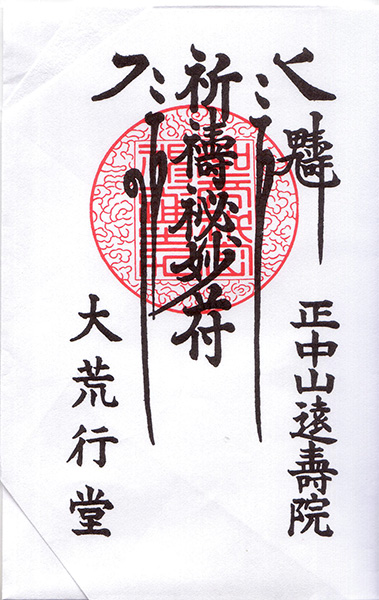 正中山遠壽院
祈禱祕妙符
大荒行堂